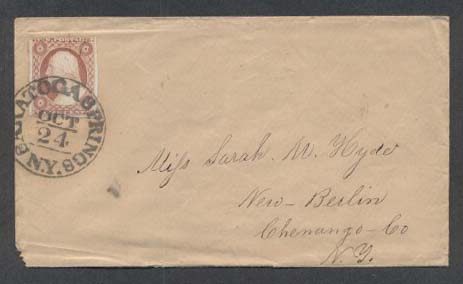 SARATOGA SPRINGS N.Y.
OCT
24
Miss Sarah. M. Hyde
New-Berlin
Chenango-Co
N.Y.